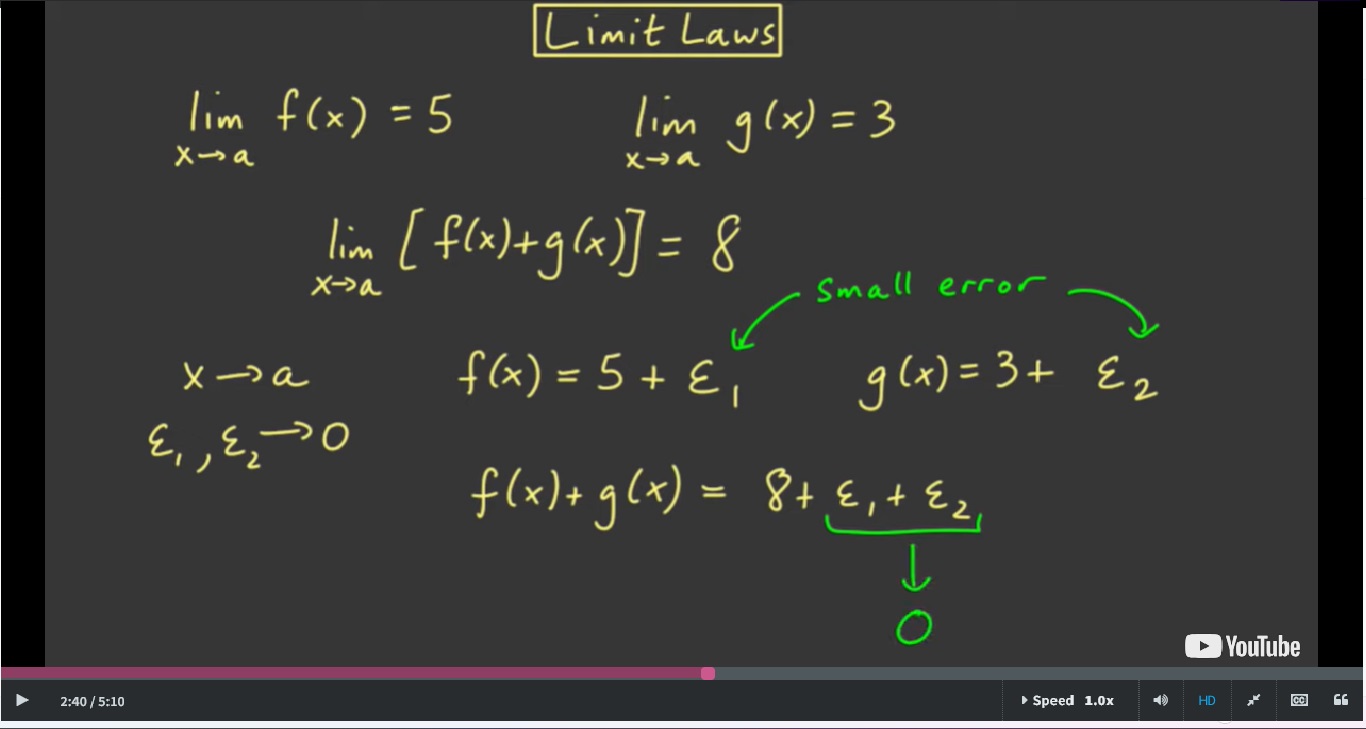 Limit Laws
lim x→a f(x) = 5
lim x→a g(x) = 3
lim x→a [f(x)+g(x)] = 8
small error
x→a
f(x) = 5 + ε₁
g(x) = 3 + ε₂
ε₁, ε₂ → 0
f(x)+g(x) = 8 + ε₁ + ε₂
↓
0
YouTube
2:40 / 5:10
Speed 1.0x
HD
CC